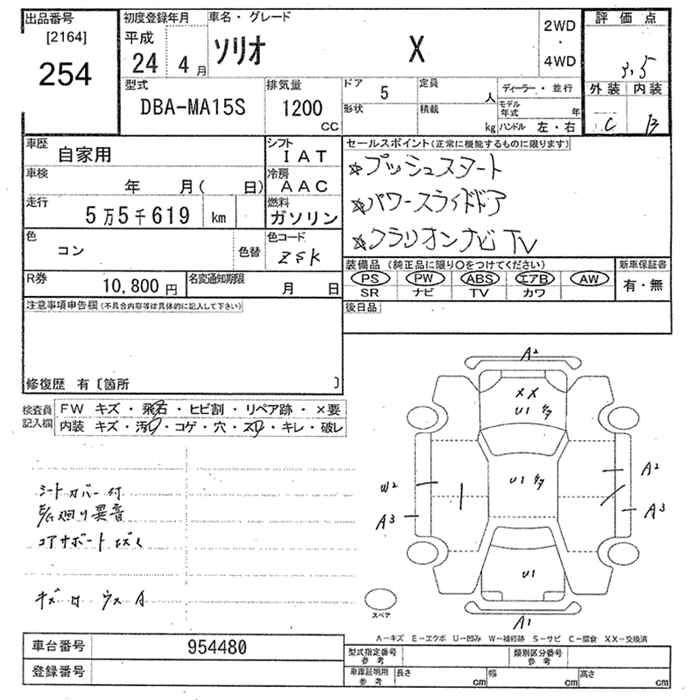 出品番号
[2164]
254
初度登録年月
平成
24年 4月
車名・グレード
ソリオ X
2WD
・
4WD
評価点
3.5
外装 内装
C B
型式
DBA-MA15S
排気量
1200
CC
ドア
5
形状
定員
人
積載
kg
ディーラー・並行
モデル年式 年
ハンドル 左・右
車歴
自家用
シフト
IAT
車検
年 月( 日)
冷房
AAC
走行
5万5千619 km
燃料
ガソリン
色
コン
色替
色コード
ZSK
R券
10,800円
名変通知期限
月 日
セールスポイント(正常に機能するものに限ります)
☆プッシュスタート
☆パワースライドドア
☆クラリオンナビ TV
装備品(純正品に限り○をつけてください)
PS PW ABS エアB AW
SR ナビ TV カワ
新車保証書
有・無
後日品
注意事項申告欄(不具合内容等は具体的に記入して下さい)
修復歴 有〔箇所 〕
検査員
記入欄
FW キズ・飛石・ヒビ割・リペア跡・×要
内装 キズ・汚れ・コゲ・穴・スレ・キレ・破レ
シートカバー付
廻り異音
コアサポート
キズ ウス A
A2
XX
U1
U1
U1
W2
A3
A2
A3
A1
スペア
A-キズ E-エクボ U-凹み W-補修跡 S-サビ C-腐食 XX-交換済
車台番号
954480
登録番号
型式指定番号
参考
類別区分番号
参考
車庫証明用
参考
長さ cm
幅 cm
高さ cm